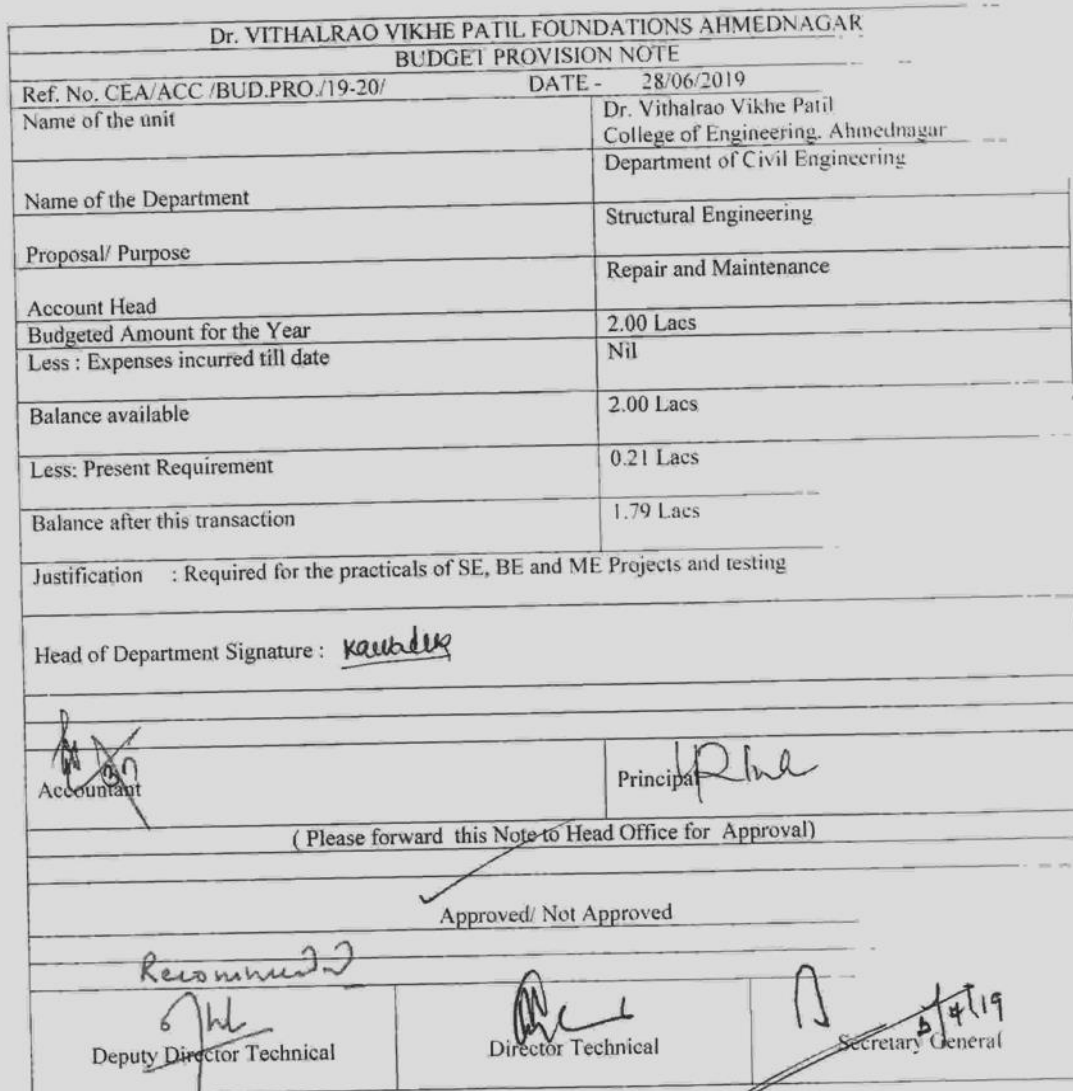 Dr. VITHALRAO VIKHE PATIL FOUNDATIONS AHMEDNAGAR
BUDGET PROVISION NOTE
Ref. No. CEA/ACC /BUD.PRO./19-20/ DATE - 28/06/2019
Name of the unit Dr. Vithalrao Vikhe Patil
College of Engineering. Ahmednagar
Name of the Department Department of Civil Engineering
Proposal/ Purpose Structural Engineering
Account Head Repair and Maintenance
Budgeted Amount for the Year 2.00 Lacs
Less : Expenses incurred till date Nil
Balance available 2.00 Lacs
Less: Present Requirement 0.21 Lacs
Balance after this transaction 1.79 Lacs
Justification : Required for the practicals of SE, BE and ME Projects and testing
Head of Department Signature :
Accountant Principal
( Please forward this Note to Head Office for Approval)
Approved/ Not Approved
Recommended
Deputy Director Technical Director Technical Secretary General